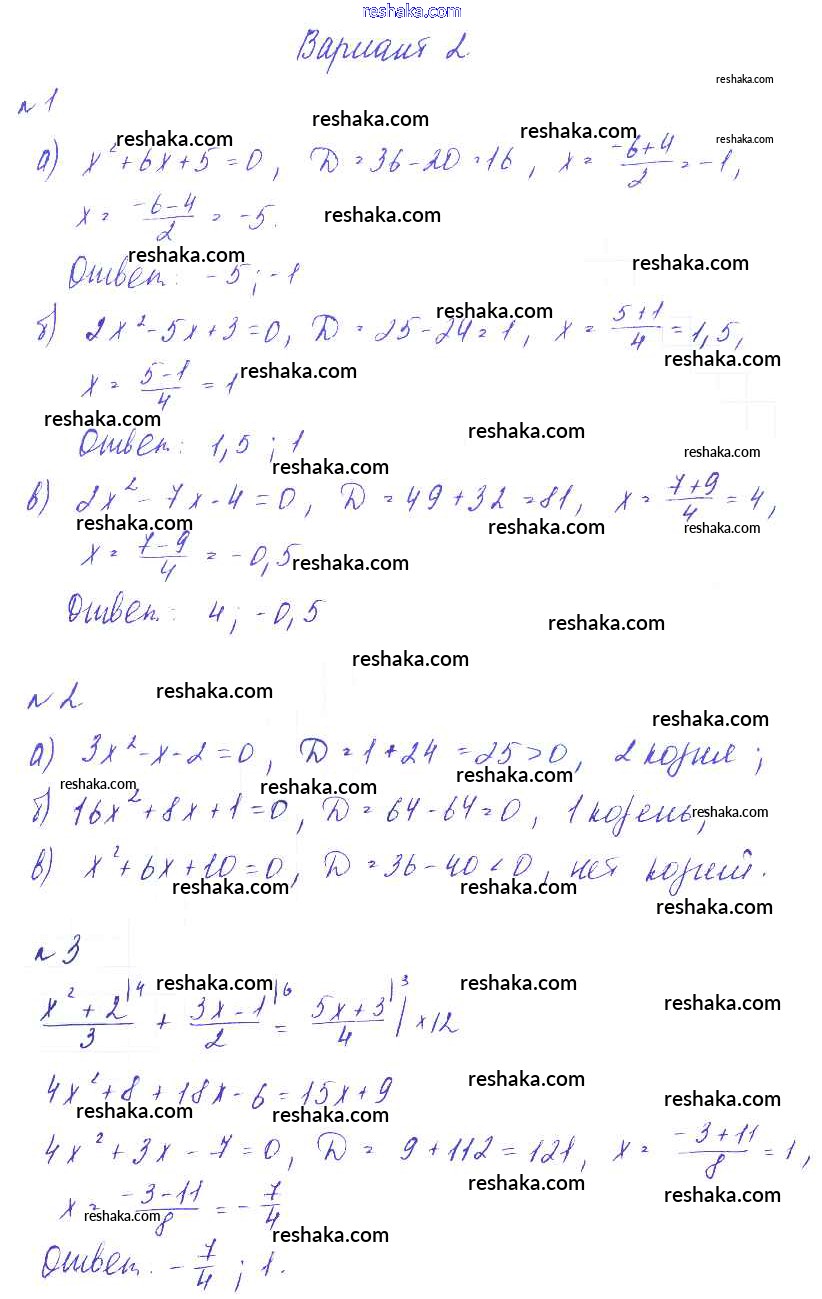 reshaka.com
Вариант 2
reshaka.com
№1
reshaka.com
reshaka.com reshaka.com reshaka.com
а) x² + 6x + 5 = 0, D = 36 - 20 = 16, x = (-6+4)/2 = -1,
x = (-6-4)/2 = -5. reshaka.com
reshaka.com reshaka.com
Ответ: -5; -1
reshaka.com
б) 2x² - 5x + 3 = 0, D = 25 - 24 = 1, x = (5+1)/4 = 1,5,
reshaka.com
x = (5-1)/4 = 1 reshaka.com
reshaka.com reshaka.com
Ответ: 1,5; 1
reshaka.com reshaka.com
в) 2x² - 7x - 4 = 0, D = 49 + 32 = 81, x = (7+9)/4 = 4,
reshaka.com reshaka.com reshaka.com
x = (7-9)/4 = -0,5 reshaka.com
Ответ: 4; -0,5
reshaka.com
reshaka.com
№2 reshaka.com
reshaka.com
а) 3x² - x - 2 = 0, D = 1 + 24 = 25 > 0, 2 корня;
reshaka.com reshaka.com reshaka.com
б) 16x² + 8x + 1 = 0, D = 64 - 64 = 0, 1 корень, reshaka.com
в) x² + 6x + 10 = 0, D = 36 - 40 < 0, нет корней.
reshaka.com reshaka.com
reshaka.com
№3
reshaka.com reshaka.com reshaka.com
(x² + 2)/3 |4 + (3x - 1)/2 |6 = (5x + 3)/4 |3 | × 12
reshaka.com
4x² + 8 + 18x - 6 = 15x + 9
reshaka.com reshaka.com reshaka.com
4x² + 3x - 7 = 0, D = 9 + 112 = 121, x = (-3+11)/8 = 1,
reshaka.com reshaka.com
x = (-3-11)/8 = -7/4
reshaka.com
reshaka.com
Ответ. -7/4; 1.